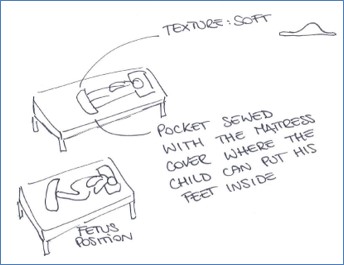 TEXTURE: SOFT
POCKET SEWED
WITH THE MATTRESS
COVER WHERE THE
CHILD CAN PUT HIS
FEET INSIDE
FETUS
POSITION